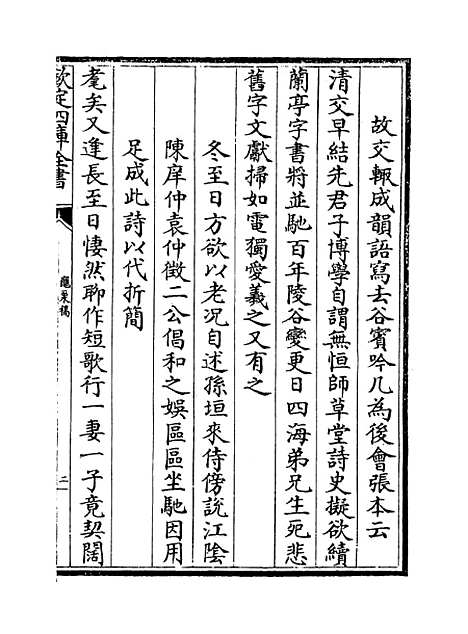 故交輒成韻語寫去谷賓吟几為後會張本云
清交早結先君子博學自謂無恒師草堂詩史擬欲續
蘭亭字書將並馳百年陵谷變更日四海弟兄生死悲
舊字文獻掃如電獨愛羲之又有之
冬至日方欲以老况自述孫垣來侍傍說江陰
陳庠仲袁仲徵二公倡和之娛區區坐馳因用
足成此詩以代折簡
耄矣又逢長至日悽然聊作短歌行一妻一子竟契闊
欽定四庫全書
龜巢稿
二